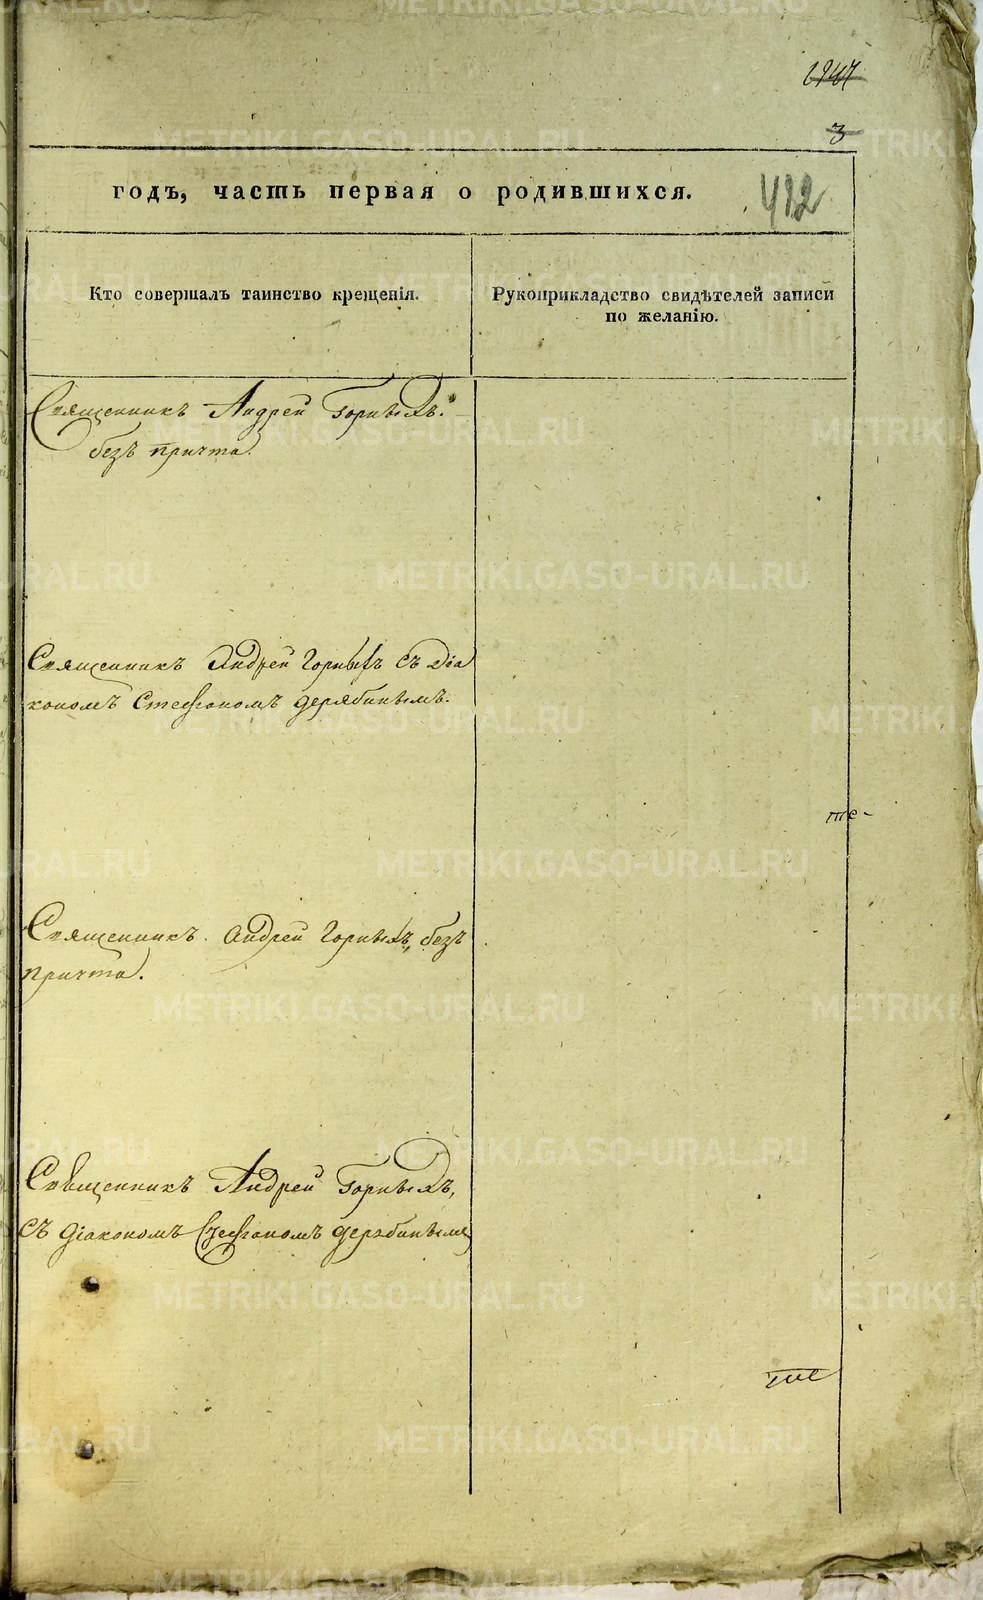 3
годъ, часть первая о родившихся.
412
Кто совершалъ таинство крещенія.
Рукоприкладство свидѣтелей записи
по желанію.
Священникъ Андрей Горныхъ.
безъ причта.
Священникъ Андрей Горныхъ съ Діа
кономъ Стефаномъ Дерябинымъ.
Священникъ Андрей Горныхъ, безъ
причта.
Священникъ Андрей Горныхъ,
съ Діакономъ Стефаномъ Дерябинымъ
METRIKI.GASO-URAL.RU